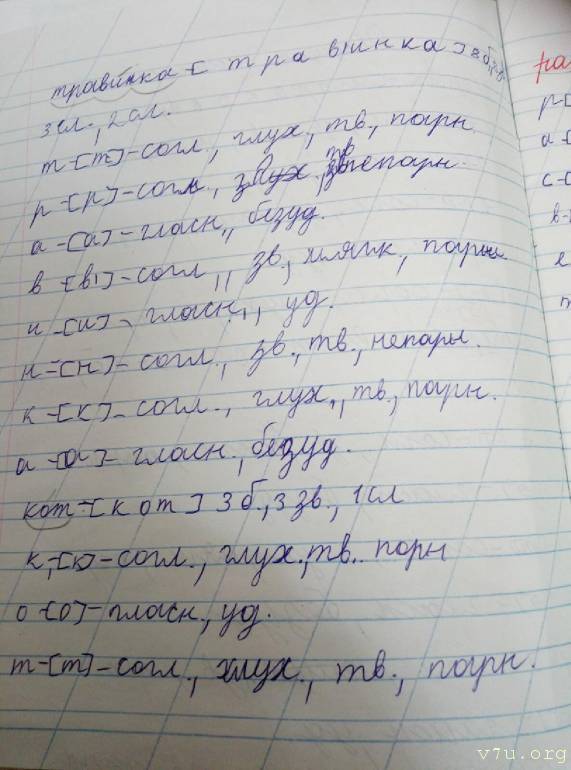 травинка [ т р а в' и н к а ] 8 б., 8 зв
3 гл., 2 сл.
т-[т]-согл, глух., тв., парн
р-[р]-согл, тв непарн.
а-[а]-гласн., безуд.
в-[в']-согл., зв., мягк, парн
и-[и]- гласн., уд.
н-[н]-согл., зв., тв., непарн.
к-[к]-согл., глух., тв., парн.
а-[а]-гласн., безуд.
кот-[к о т] 3 б., 3 зв., 1 сл
к-[к]-согл., глух., тв. парн
о-[о]-гласн., уд.
т-[т]-согл., глух., тв., парн.
ра
р-[
а-[
с-[
в-
е
v7u.org